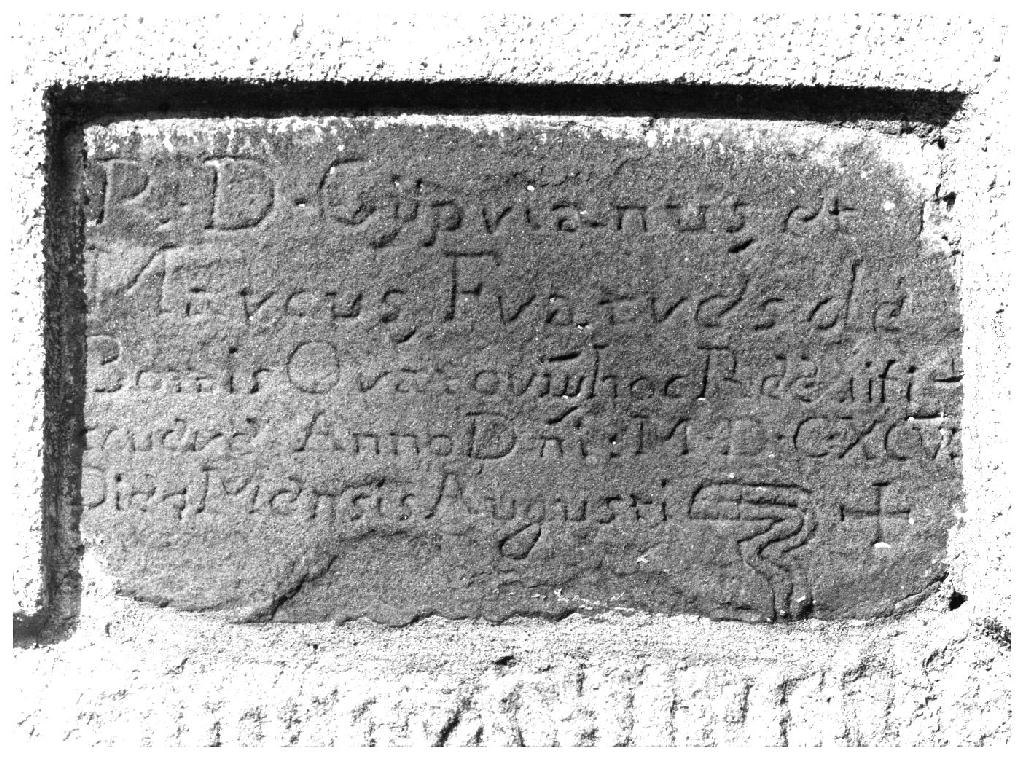 P. D. Cyprianus et
Marcus Fratres de
Bonis Oratoriū hoc Rdedifi
caverē Anno Dni: M D CXCV.
Die 4 Mensis Augusti +